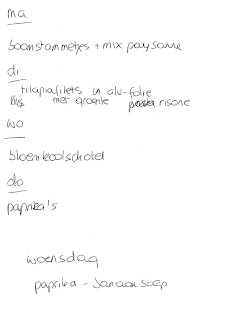 ma
boomstammetjes + mix paysanne
di
tilapiafilets in alu-folie
met groente risone
wo
bloemkoolschotel
do
paprika's
woensdag
paprika - soep